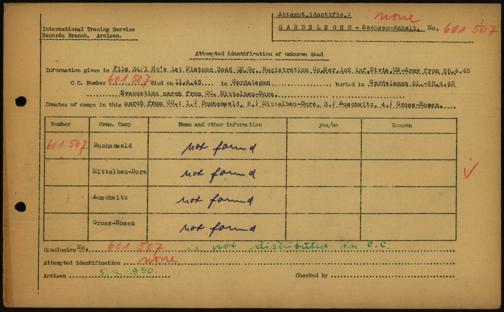 International Tracing Service
Records Branch, Arolsen.
Attempt.identific.: none
GARDELEGEN - Sachsen-Anhalt. No. 601 507
Attempted identification of unknown dead
Information given in File 24/1 No's 1st Platoon Dead QM.Gr. Registration Co.Her.1st Inf.Divis.US-Army from 26.4.45
C.C. Number 601 507 died on 11.4.45 in Gardelegen buried in Gardelegen 21.-25.4.45
Evacuation march from CC. Mittelbau-Dora.
Inmates of camps in this march from CC.: 1.) Buchenwald, 2.) Mittelbau-Dora, 3.) Auschwitz, 4.) Gross-Rosen.
Number Conc. Camp Name and other information yes/no Reason
601 507 Buchenwald not found
Mittelbau-Dora not found
Auschwitz not found
Gross-Rosen not found
Conclusion No. 601 507 is not distributed in C.C.
Attempted identification none
Arolsen 5. 9. 1950 Checked by